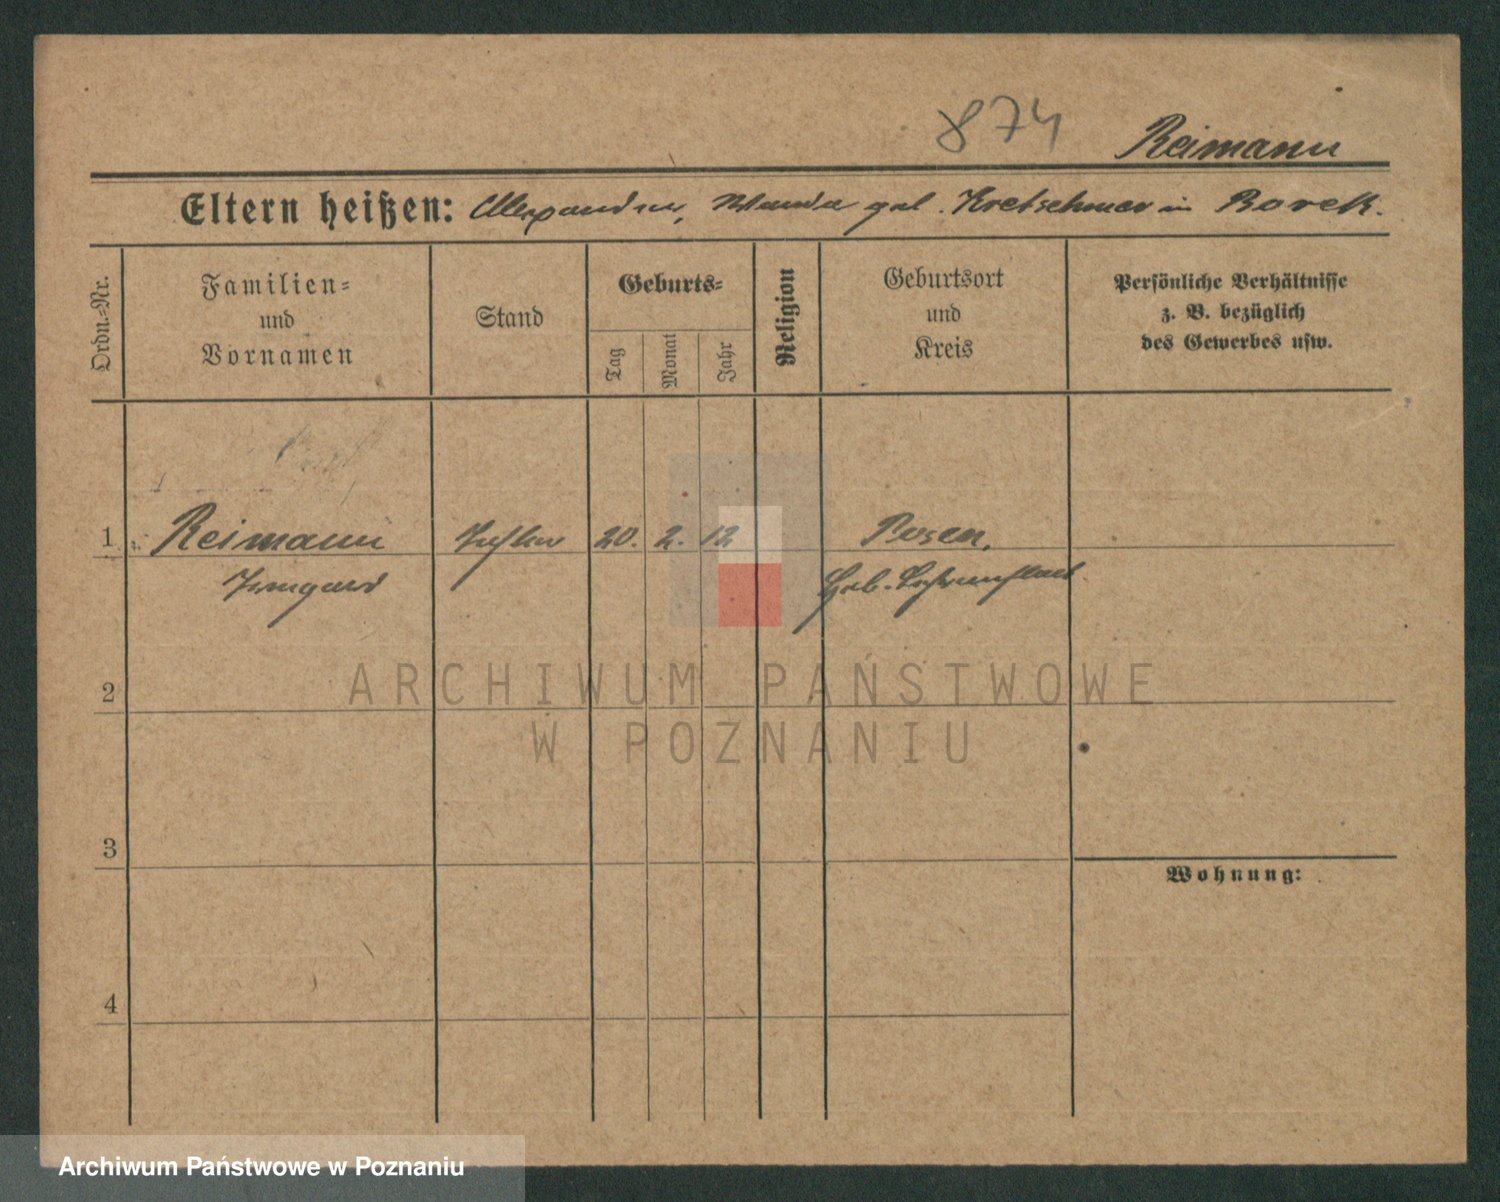 874 Reimann
Eltern heißen: Alexander, Wanda geb. Kretschmer in Borek.
Ordn.-Nr.
Familien-
und
Vornamen
Stand
Geburts-
Tag
Monat
Jahr
Religion
Geburtsort
und
Kreis
Persönliche Verhältnisse
z. B. bezüglich
des Gewerbes usw.
1 Reimann Tochter 20. 2. 12 Posen,
Irmgard Heb.
2
3
4
Wohnung:
ARCHIWUM PAŃSTWOWE
W POZNANIU
Archiwum Państwowe w Poznaniu